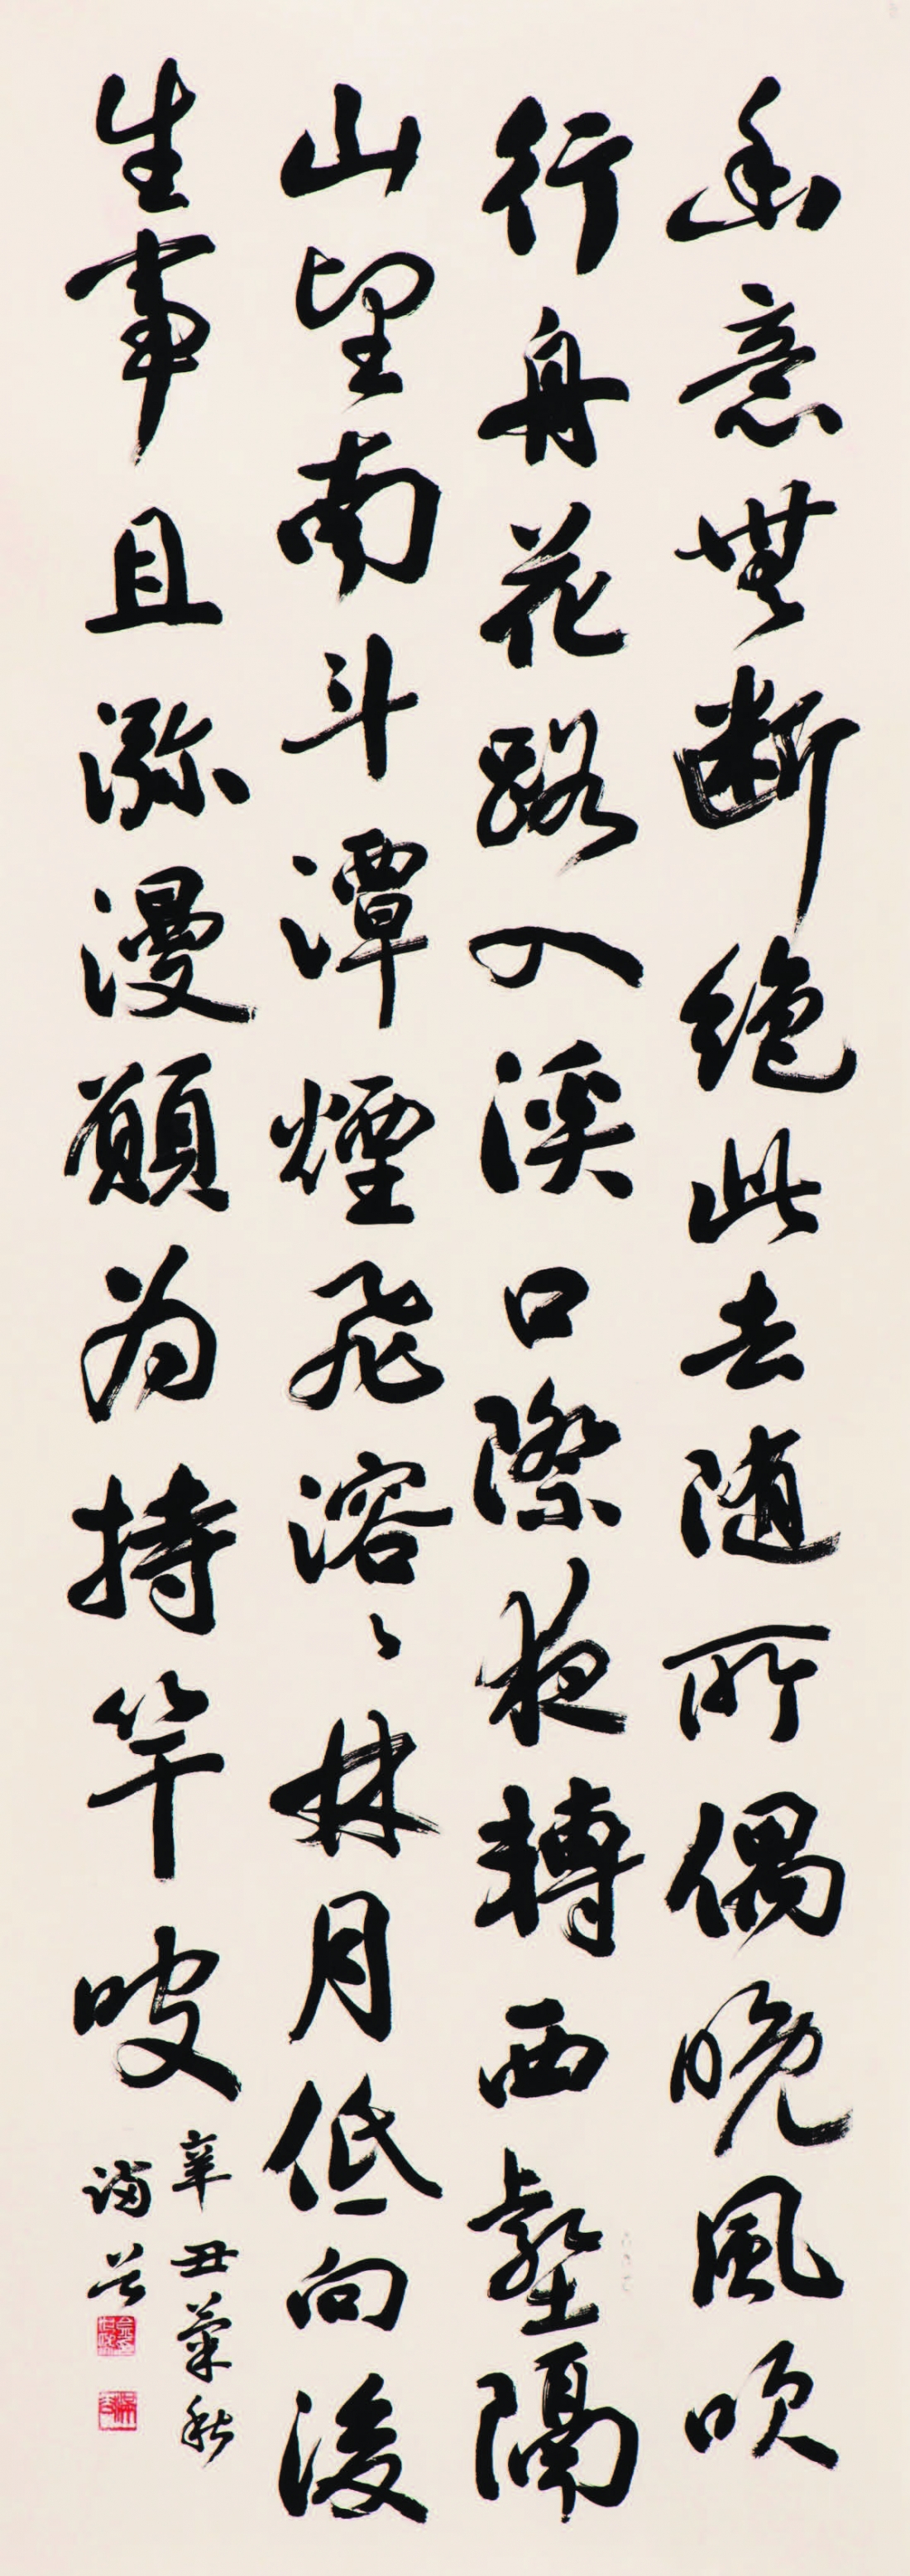 幽意無断絶此去随所偶晚風吹
行舟花路入溪口際夜轉西壑隔
山望南斗潭煙飛溶〻林月低向後
生事且瀰漫願為持竿叟
辛丑菊秋